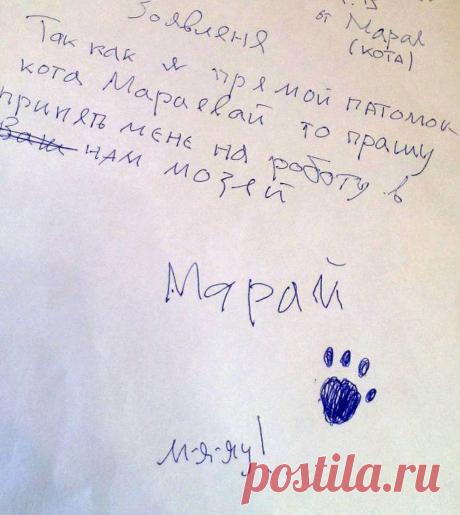 от Марая
(кота)
Зоявленя
Так как я прямой патомок
кота Мараевай то прашу
принять мене на роботу в
Ваш нам мозей
Марай
м-я-яу!
postila.ru